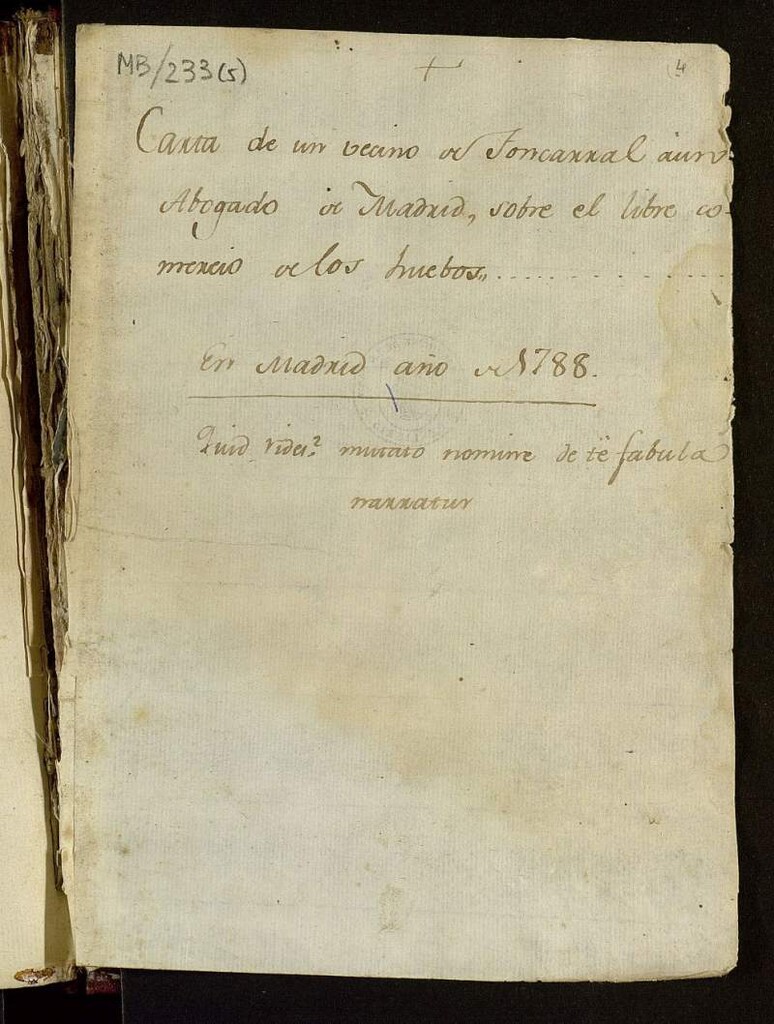 MB/233(5)
+
(4
Carta de un vecino de Foncarral á un
Abogado de Madrid, sobre el libre co-
mercio de los huebos,,
En Madrid año de 1788.
Quid rides? mutato nomine de të fabula
narratur